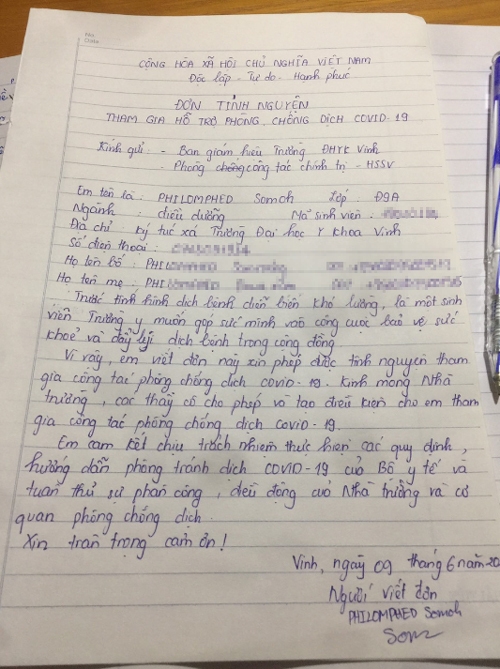 CỘNG HÒA XÃ HỘI CHỦ NGHĨA VIỆT NAM
Độc lập - Tự do - Hạnh phúc
ĐƠN TÌNH NGUYỆN
THAM GIA HỖ TRỢ PHÒNG, CHỐNG DỊCH COVID-19
Kính gửi - Ban giám hiệu Trường ĐHYK Vinh
- Phòng công tác chính trị - HSSV
Em tên là: PHILOMPHED Somoh Lớp: Đ9A
Ngành: điều dưỡng Mã sinh viên:
Địa chỉ: Ký túc xá Trường Đại học Y Khoa Vinh
Số điện thoại:
Họ tên bố: PHIL
Họ tên mẹ: PHIL
Trước tình hình dịch bệnh diễn biến khó lường, là một sinh
viên Trường y muốn góp sức mình vào công cuộc bảo vệ sức
khoẻ và đẩy lùi dịch bệnh trong cộng đồng.
Vì vậy, em viết đơn này xin phép được tình nguyện tham
gia công tác phòng chống dịch covid-19. Kính mong Nhà
trường, các thầy cô cho phép và tạo điều kiện cho em tham
gia công tác phòng chống dịch covid-19.
Em cam kết chịu trách nhiệm thực hiện các quy định,
hướng dẫn phòng tránh dịch COVID-19 của Bộ y tế và
tuân thủ sự phân công, điều động của Nhà trường và cơ
quan phòng chống dịch.
Xin trân trọng cảm ơn!
Vinh, ngày 09 tháng 6 năm 20
Người viết đơn
PHILOMPHED Somoh
Som